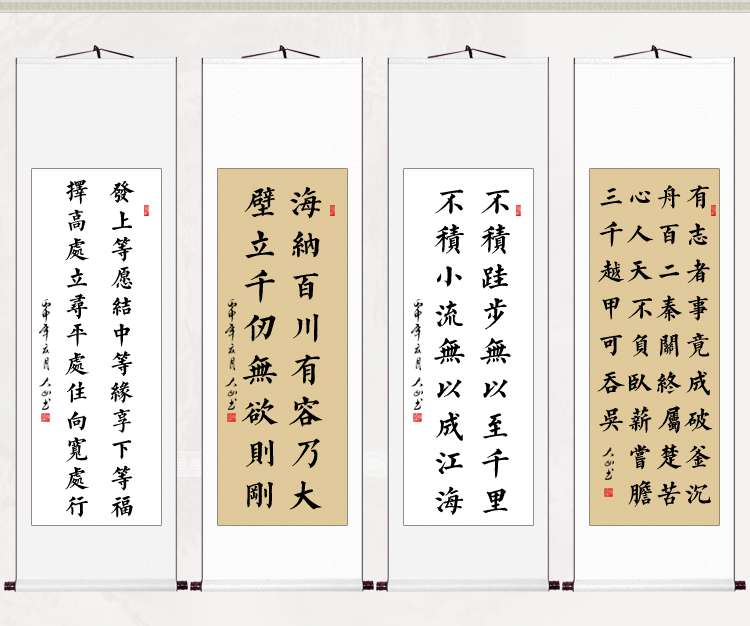 發上等愿結中等緣享下等福
擇高處立尋平處住向寬處行
海納百川有容乃大
壁立千仞無欲則剛
不積跬步無以至千里
不積小流無以成江海
有志者事竟成破釜沉
舟百二秦關終屬楚苦
心人天不負臥薪嘗膽
三千越甲可吞吳